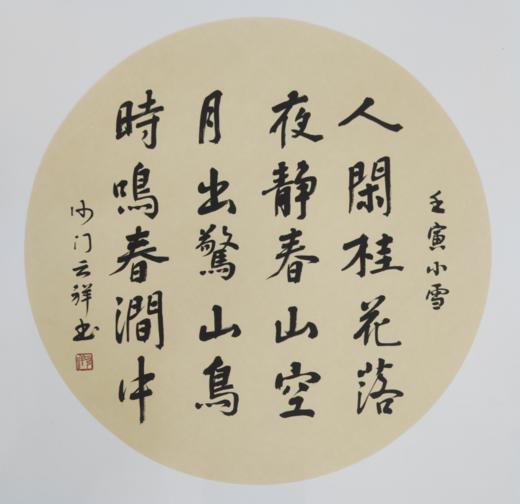 壬寅小雪
人閑桂花落
夜靜春山空
月出驚山鳥
時鳴春澗中
沙门云祥书